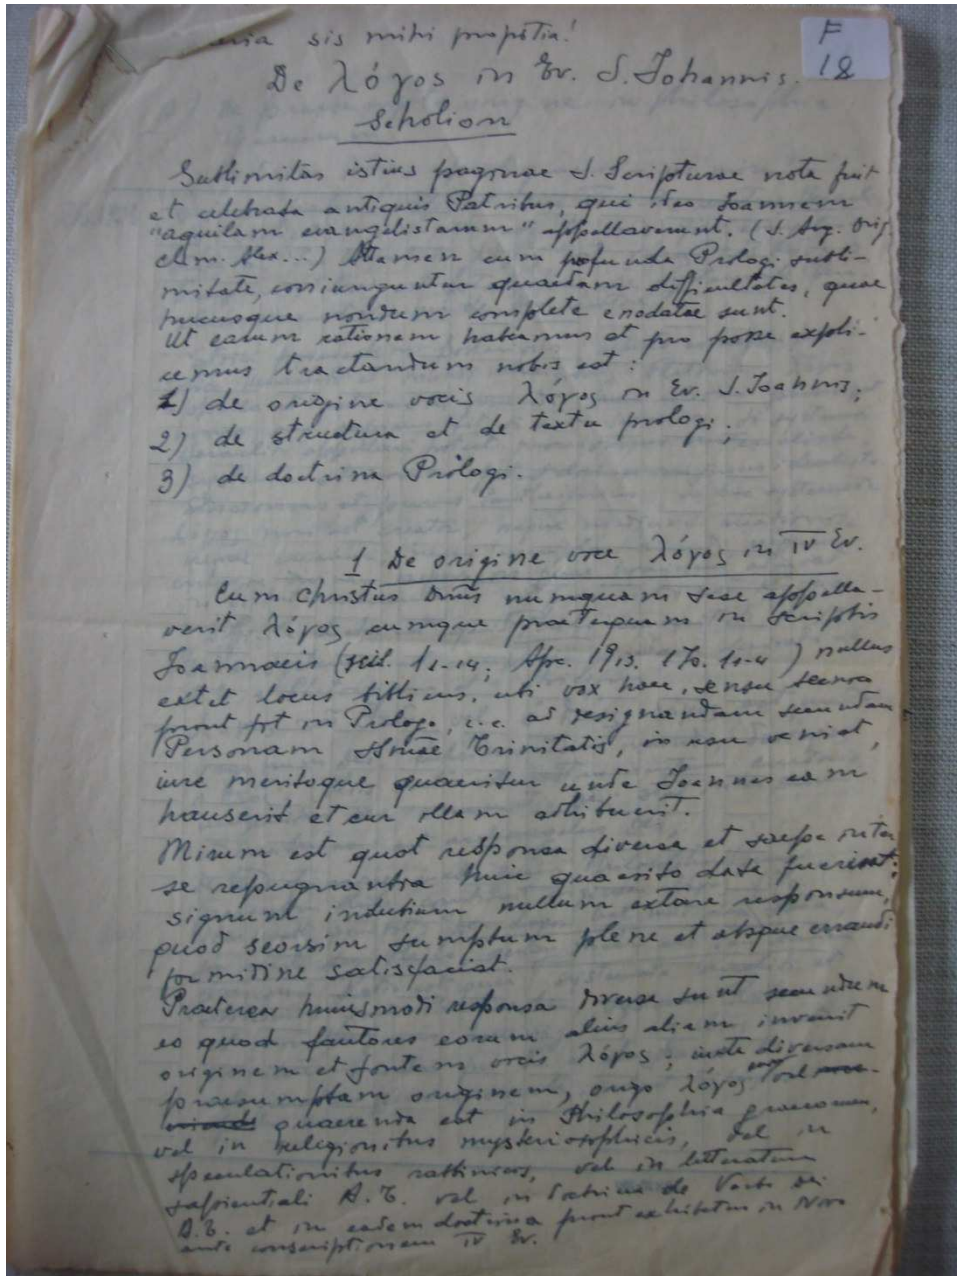 sis mihi propitia!
F
18
De λόγος in Ev. S. Johannis.
Scholion
Sublimitas istius paginae S. Scripturae nota fuit
et celebrata antiquis Patribus, qui ideo Joannem
"aquilam evangelistarum" appellaverunt. (S. Aug. Orig
Clem. Alex...) Attamen cum profunda Prologi subli-
mitate, coniunguntur quaedam difficultates, quae
hucusque nondum complete enodatae sunt.
Ut earum rationem habeamus et pro posse expli-
cemus tractandum nobis est:
1) de origine vocis λόγος in Ev. S. Joannis;
2) de structura et de textu prologi;
3) de doctrina Prologi.
1 De origine voce λόγος in IV Ev.
Cum Christus Dnus numquam sese appella-
verit λόγος cumque praeterquam in scriptis
Joanneis (scil. 11-14; Apc. 1913. 1 Jo. 11-4) nullus
extet locus biblicus, ubi vox haec, sensu
prout fit in Prologo, i.e. ad designandam secundam
Personam SSmae Trinitatis, in usu veniat,
iure meritoque quaeritur unde Joannes eam
hauserit et cur illam adhibuerit.
Mirum est quot responsa diversa et saepe inter
se repugnantia huic quaesito data fuerint:
signum indubium nullum extare responsum,
quod seorsim sumptum plene et absque errandi
formidine satisfaciat.
Praeterea huiusmodi responsa diversa sunt secundum
eo quod fautores eorum alius aliam invenit
originem et fontem vocis λόγος; iuxta diversam
praesumptam originem, origo λόγος vel
quaerenda est in Philosophia
vel in religionibus mysteriosophicis, vel in
speculationibus rabbinicis, vel in litteratura
sapientiali A.T. vel in doctrina de Verbo Dei
A.T. et in eadem doctrina prout exhibetur in Novo
ante conscriptionem IV Ev.